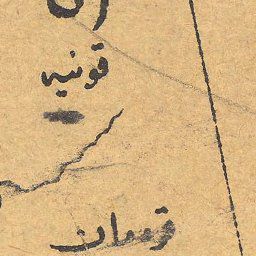 قونیه
قرمان